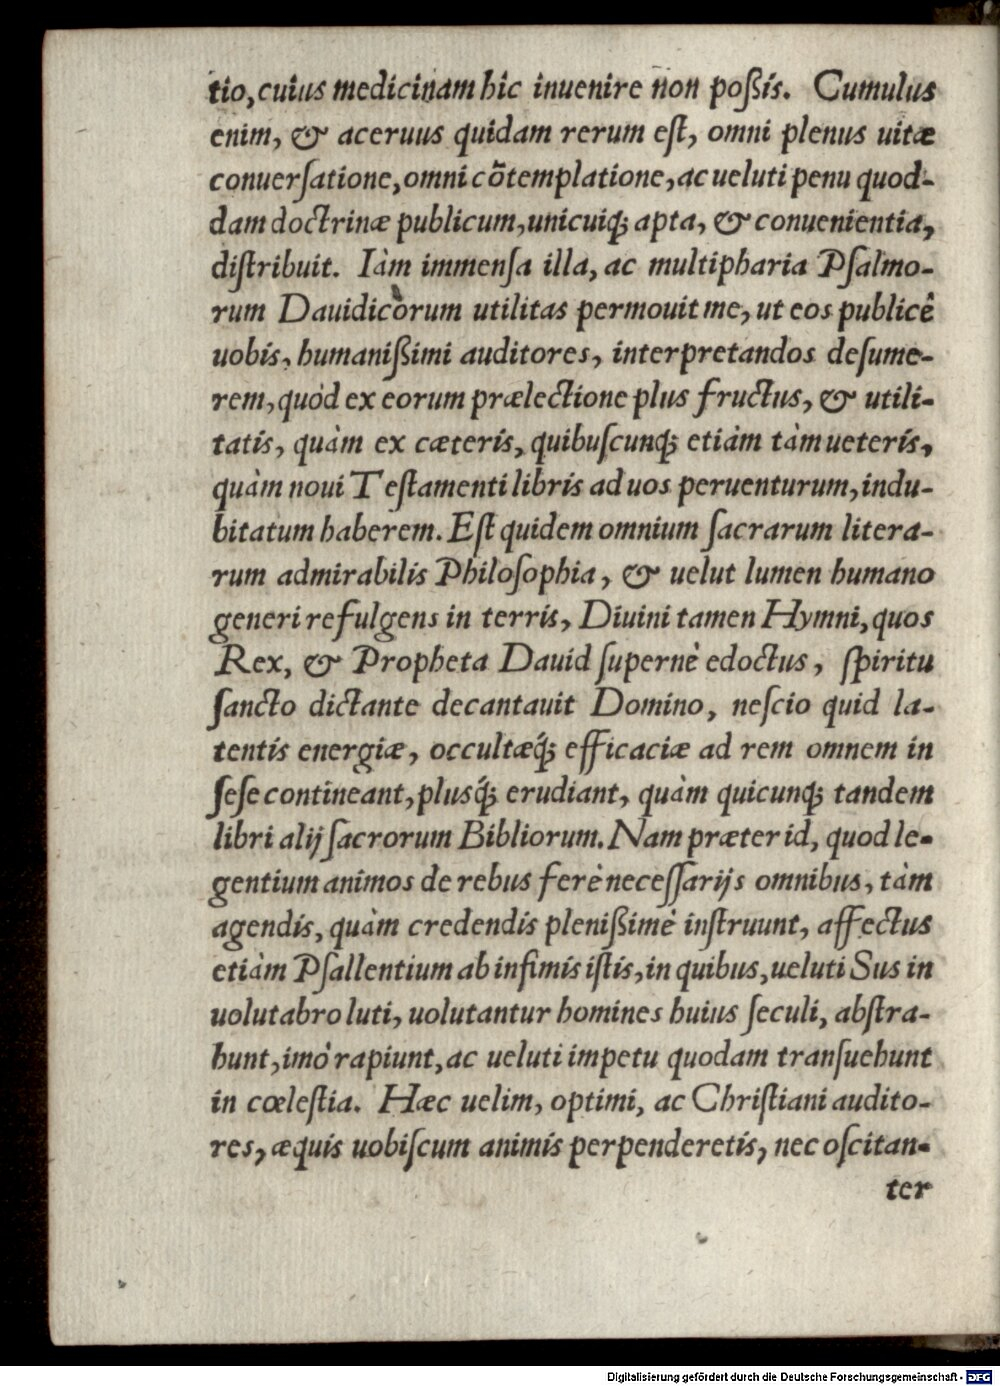 tio, cuius medicinam hic inuenire non poßis. Cumulus
enim, & aceruus quidam rerum eſt, omni plenus uitæ
conuerſatione, omni cõtemplatione, ac ueluti penu quod-
dam doctrinæ publicum, unicuiq; apta, & conuenientia,
diſtribuit. Iàm immenſa illa, ac multipharia Pſalmo-
rum Dauidicorum utilitas permouit me, ut eos publicè
uobis, humanißimi auditores, interpretandos deſume-
rem, quòd ex eorum prælectione plus fructus, & utili-
tatis, quàm ex cæteris, quibuſcunq; etiàm tàm ueteris,
quàm noui Teſtamenti libris ad uos peruenturum, indu-
bitatum haberem. Eſt quidem omnium ſacrarum litera-
rum admirabilis Philoſophia, & uelut lumen humano
generi refulgens in terris, Diuini tamen Hymni, quos
Rex, & Propheta Dauid ſupernè edoctus, ſpiritu
ſancto dictante decantauit Domino, neſcio quid la-
tentis energiæ, occultæq́; efficaciæ ad rem omnem in
ſeſe contineant, plusq́; erudiant, quàm quicunq; tandem
libri alij ſacrorum Bibliorum. Nam præter id, quod le-
gentium animos de rebus ferè neceſſarijs omnibus, tàm
agendis, quàm credendis plenißimè inſtruunt, affectus
etiàm Pſallentium ab infimis iſtis, in quibus, ueluti Sus in
uolutabro luti, uolutantur homines huius ſeculi, abſtra-
hunt, imò rapiunt, ac ueluti impetu quodam tranſuehunt
in cœleſtia. Hæc uelim, optimi, ac Chriſtiani audito-
res, æquis uobiſcum animis perpenderetis, nec oſcitan-
ter
Digitalisierung gefördert durch die Deutsche Forschungsgemeinschaft - DFG